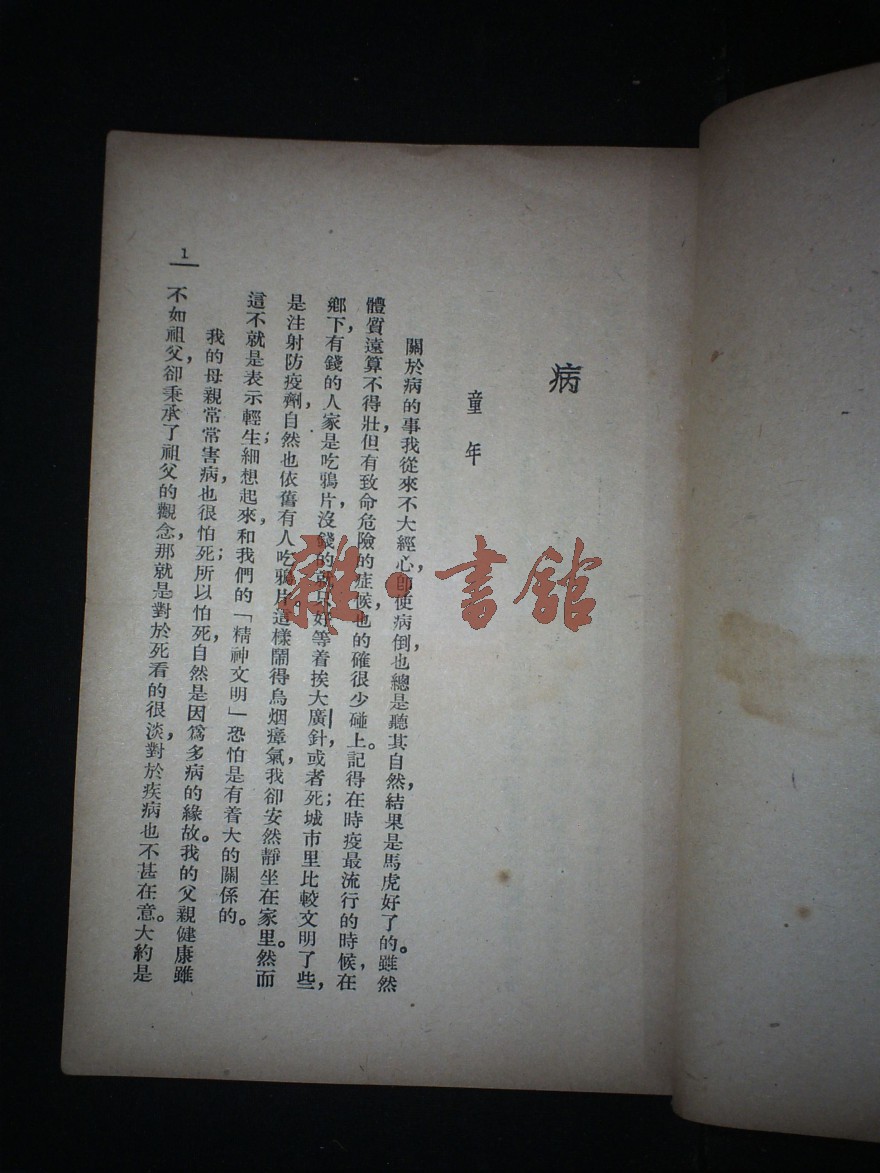 病
童年
關於病的事我從來不大經心,卽使病倒,也總是聽其自然,結果是馬虎好了的。雖然
體質遠算不得壯,但有致命危險的症候,也的確很少碰上。記得在時疫最流行的時候,在
鄉下,有錢的人家是吃鴉片,沒錢的就只好等着挨大廣針,或者死;城市里比較文明了些,
是注射防疫劑,自然也依舊有人吃鴉片。這樣鬧得烏烟瘴氣,我卻安然靜坐在家里。然而
這不就是表示輕生;細想起來,和我們的「精神文明」恐怕是有着大的關係的。
我的母親常常害病,也很怕死;所以怕死,自然是因爲多病的緣故。我的父親健康雖
不如祖父,卻秉承了祖父的觀念,那就是對於死看的很淡,對於疾病也不甚在意。大約是
1
雜·書舘